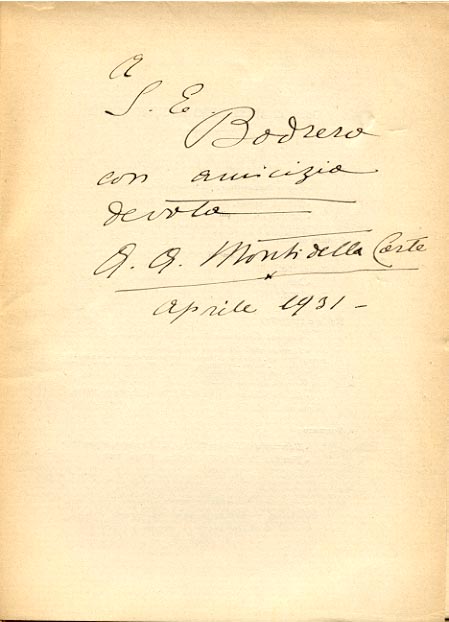 A
S. E.
Bodrero
con amicizia
devota
A. A. Monti della Corte
Aprile 1931 -